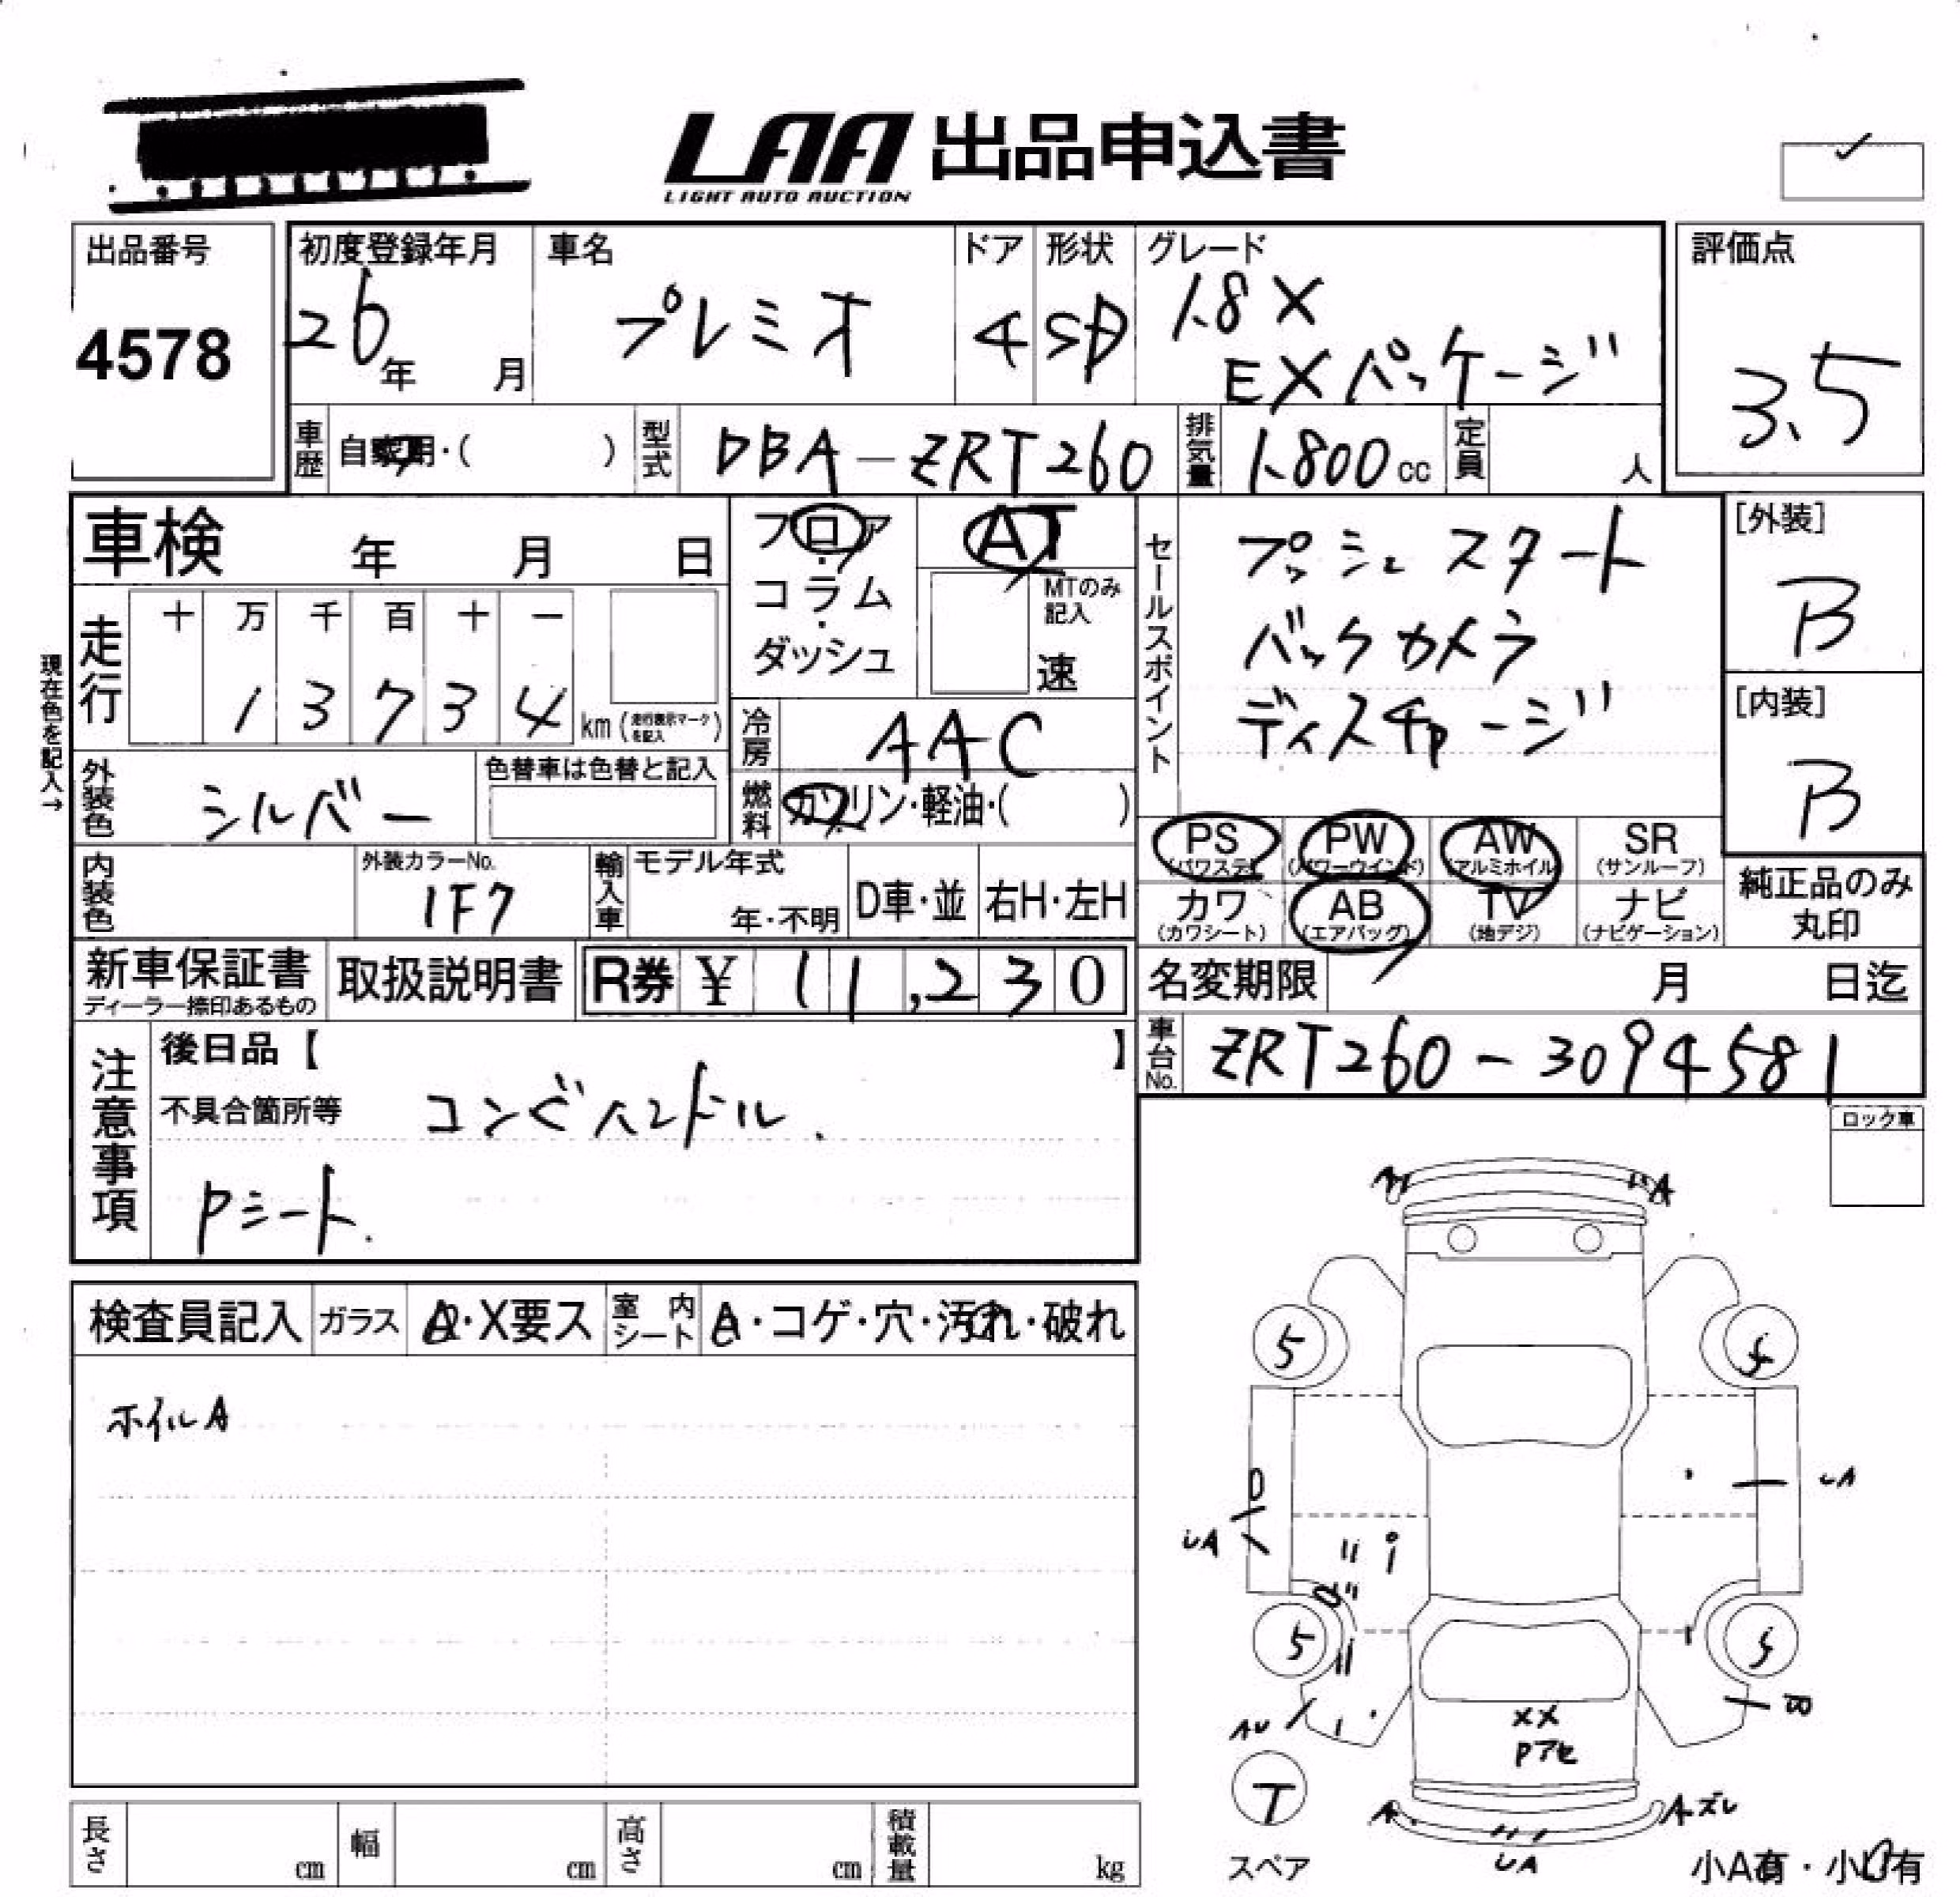 LAA 出品申込書
LIGHT AUTO AUCTION
出品番号
4578
初度登録年月
26年 月
車名
プレミオ
ドア
4
形状
SD
グレード
1.8X
EXパッケージ
評価点
3.5
車歴 自家用・( )
型式 DBA-ZRT260
排気量 1.800cc
定員 人
車検 年 月 日
フロア・コラム・ダッシュ
AT
MTのみ記入
速
セールスポイント
プッシュスタート
バックカメラ
ディスチャージ
[外装]
B
[内装]
B
現在色を記入→
走行
十 万 千 百 十 一
1 3 7 3 4 km (走行表示マークを記入)
冷房 AAC
外装色 シルバー
色替車は色替と記入
燃料 ガソリン・軽油・( )
PS (パワステ)
PW (パワーウインド)
AW (アルミホイル)
SR (サンルーフ)
カワ (カワシート)
AB (エアバッグ)
TV (地デジ)
ナビ (ナビゲーション)
純正品のみ丸印
内装色
外装カラーNo.
1F7
輸入車
モデル年式
年・不明
D車・並
右H・左H
新車保証書
ディーラー捺印あるもの
取扱説明書
R券 ¥ 11,230
名変期限 月 日迄
車台No. ZRT260-3094581
注意事項
後日品【 】
不具合箇所等 コンビハンドル.
Pシート.
ロック車
検査員記入
ガラス A・X要ス
室内シート A・コゲ・穴・汚れ・破れ
ホイルA
A
A
5
5
UA
UA
5
5
AU
B
XX
Pアセ
T
スペア
A
Aズレ
UA
小A有・小U有
長さ cm
幅 cm
高さ cm
積載量 kg